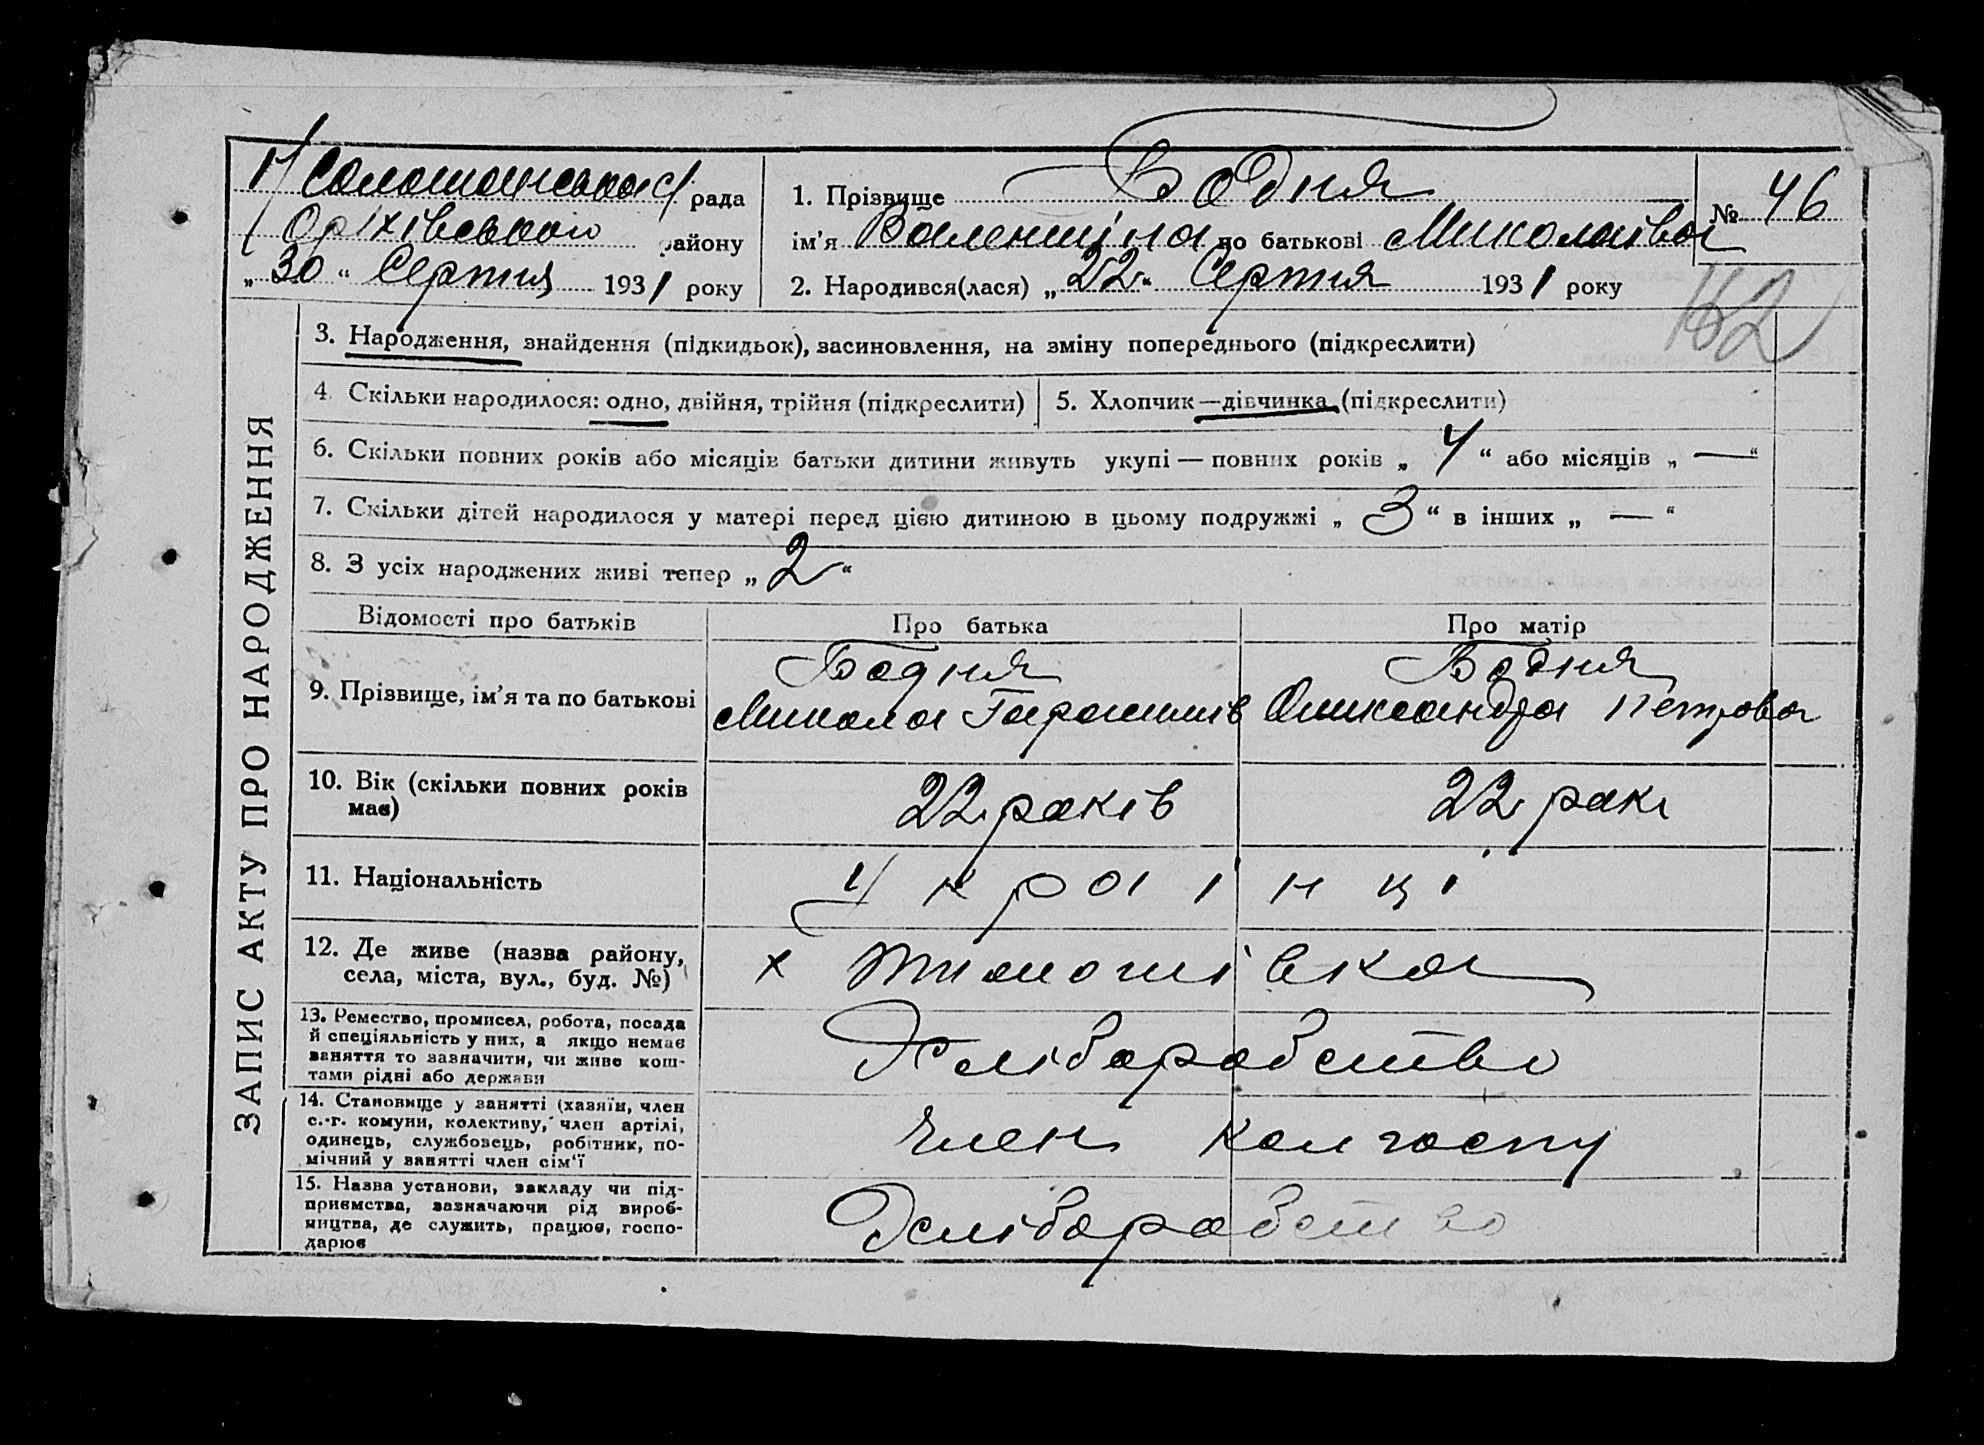 рада
Оріхівського району
„30“ Серпня 1931 року
1. Прізвище Бодня
ім’я Валентина по батькові Миколаївна
№ 46
2. Народився(лася) „22“ Серпня 1931 року
162
ЗАПИС АКТУ ПРО НАРОДЖЕННЯ
3. Народження, знайдення (підкидьок), засиновлення, на зміну попереднього (підкреслити)
4. Скільки народилося: одно, двійня, трійня (підкреслити)
5. Хлопчик—дівчинка (підкреслити)
6. Скільки повних років або місяців батьки дитини живуть укупі — повних років „4“ або місяців „—“
7. Скільки дітей народилося у матері перед цією дитиною в цьому подружжі „3“ в інших „—“
8. З усіх народжених живі тепер „2“
Відомості про батьків
Про батька
Про матір
9. Прізвище, ім’я та по батькові
Бодня
Микола
Бодня
Олександра Петровна
10. Вік (скільки повних років
має)
22 років
22 рокі
11. Національність
Українці
12. Де живе (назва району,
села, міста, вул., буд. №)
х Тимошівка
13. Ремество, промисел, робота, посада
й спеціяльність у них, а якщо немає
заняття то зазначити, чи живе кош-
тами рідні або держави
Хліборобство
14. Становище у занятті (хазяїн, член
с.-г. комуни, колективу, член артілі,
одинець, службовець, робітник, по-
мічний у занятті член сім’ї
Член колгоспу
15. Назва установи, закладу чи під-
приємства, зазначаючи рід вироб-
ництва, де служить, працює, госпо-
дарює
Хліборобство